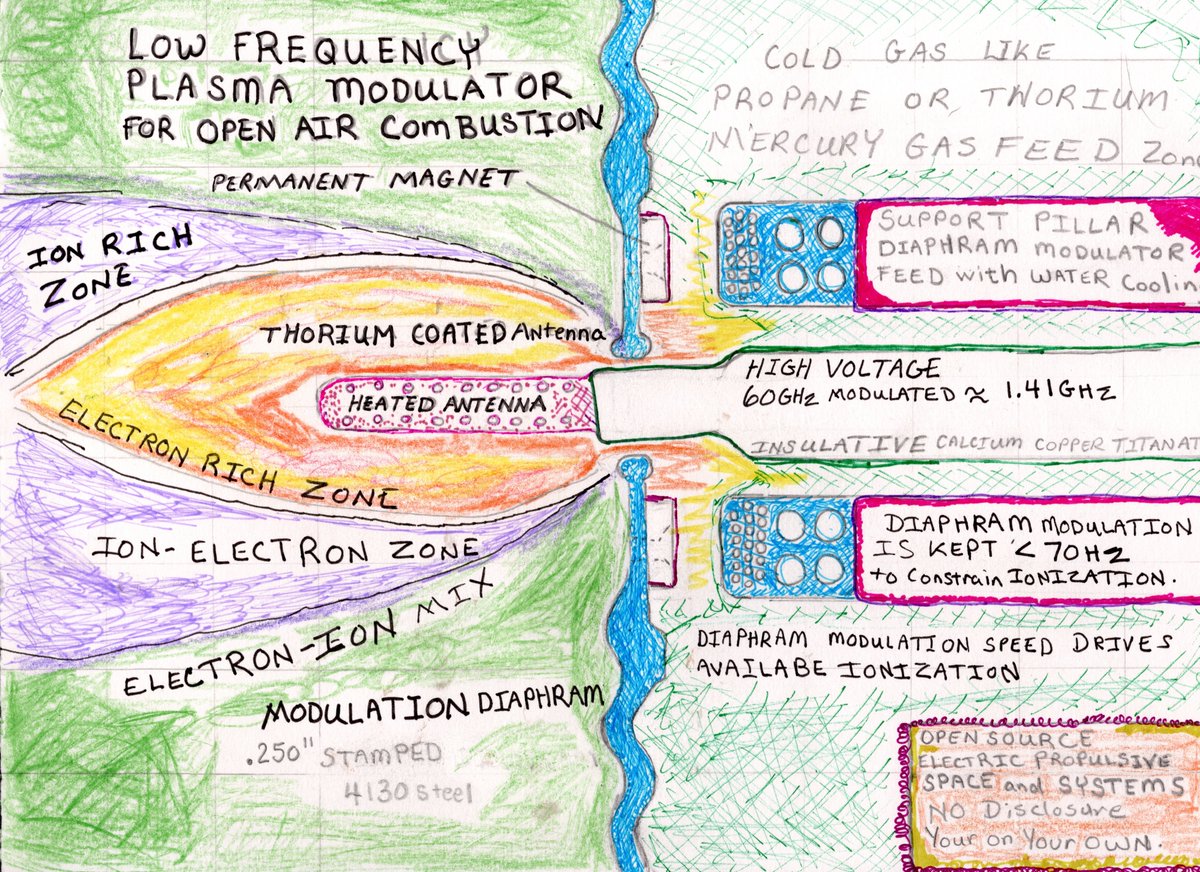 LOW FREQUENCY
PLASMA MODULATOR
FOR OPEN AIR COMBUSTION
PERMANENT MAGNET
ION RICH
ZONE
THORIUM COATED Antenna
HEATED ANTENNA
ELECTRON RICH ZONE
ION-ELECTRON ZONE
ELECTRON-ION MIX
MODULATION DIAPHRAM
.250" STAMPED
4130 Steel
COLD GAS LIKE
PROPANE OR THORIUM
MERCURY GAS FEED Zone
SUPPORT PILLAR
DIAPHRAM MODULATOR
FEED with WATER Coolin
HIGH VOLTAGE
60GHz MODULATED ≈ 1.41GHz
INSULATIVE CALCIUM COPPER TITANAT
DIAPHRAM MODULATION
IS KEPT < 70HZ
to Constrain IONIZATION.
DIAPHRAM MODULATION SPEED DRIVES
AVAILABE IONIZATION
OPEN SOURCE
ELECTRIC PROPULSIVE
SPACE and SYSTEMS
NO Disclosure
Your on Your OWN.